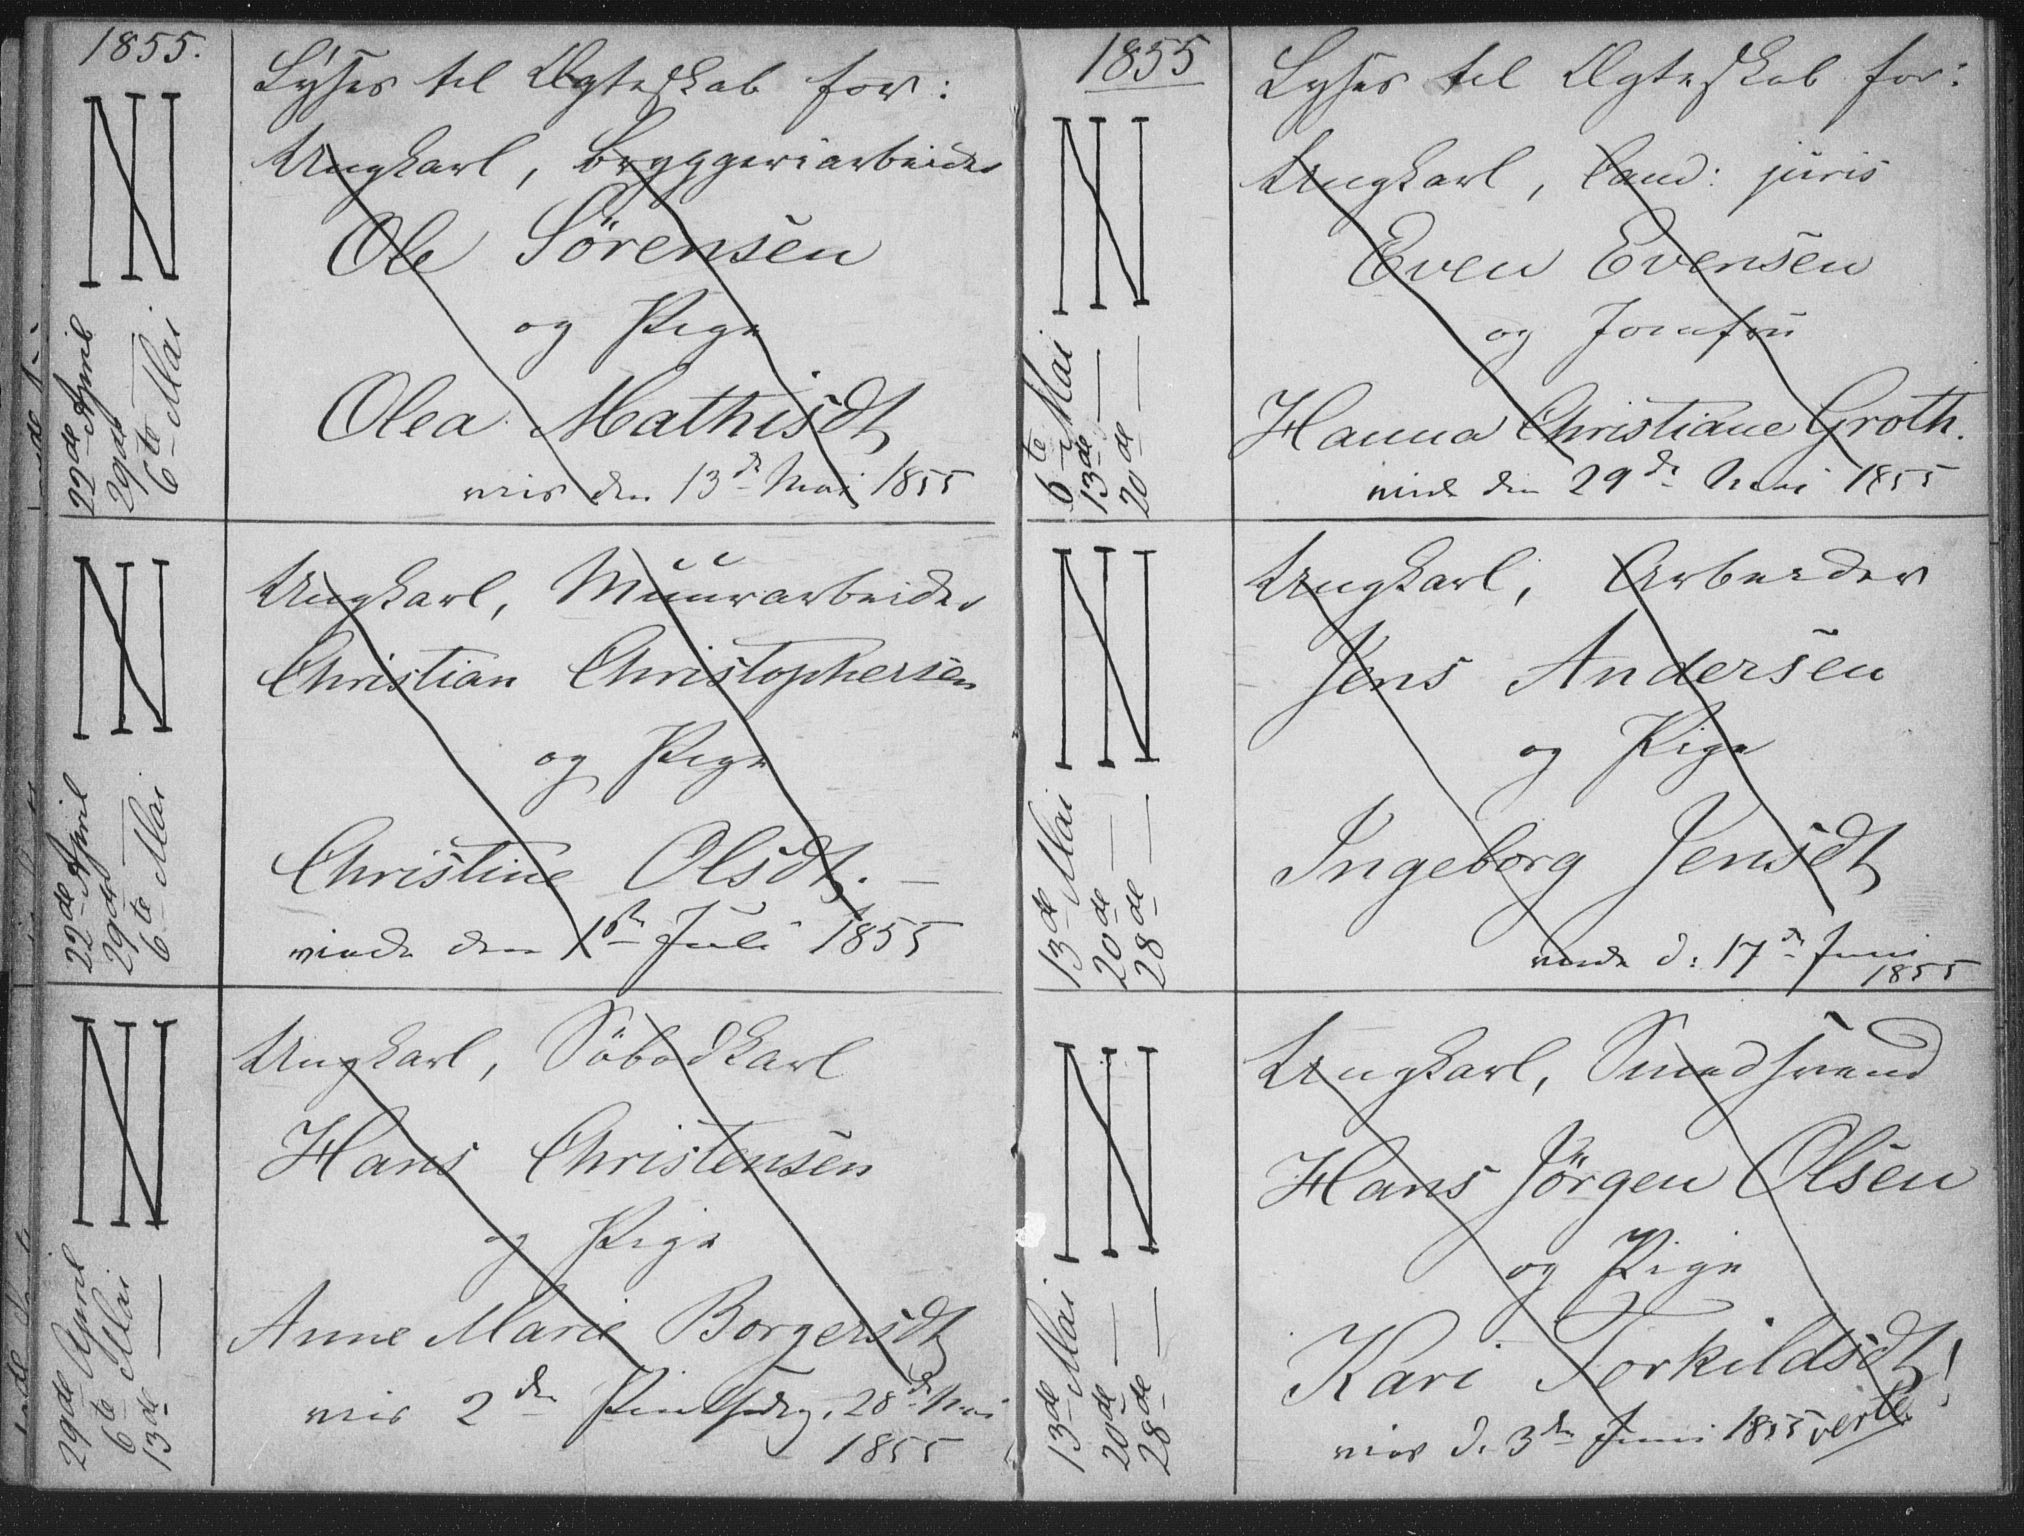 1855.
Lyses til Ægteskab for:
Ungkarl, Bryggeriarbeider
Ole Sörensen
og Pige
Olea Mathisdt
den 13de Mai 1855
22de April
29de —
6te Mai
Ungkarl, Muurarbeider
Christian Christophersen
og Pige
Christine Olsdt. —
viede den 1ste Juli 1855
22de April
29de —
6te Mai
Ungkarl, Söbodkarl
Hans Christensen
og Pige
Anne Marie Borgersdt
2den Pintsedag, 28de Mai
1855
29de April
6te Mai
13de —
1855
Lyses til Ægteskab for:
Ungkarl, Cand: juris
Even Evensen
og Jomfru
Hanna Christiane Groth.
viede den 29de Mai 1855
6te Mai
13de —
20de —
Ungkarl, Arbeider
Jens Andersen
og Pige
Ingeborg Jensdt
viede d: 17de Juni
1855
13de Mai
20de —
28de —
Ungkarl, Smedsvend
Hans Jörgen Olsen
og Pige
Kari Torkildsdt
d. 3die Juni 1855 verte!
13de Mai
20de —
28de —